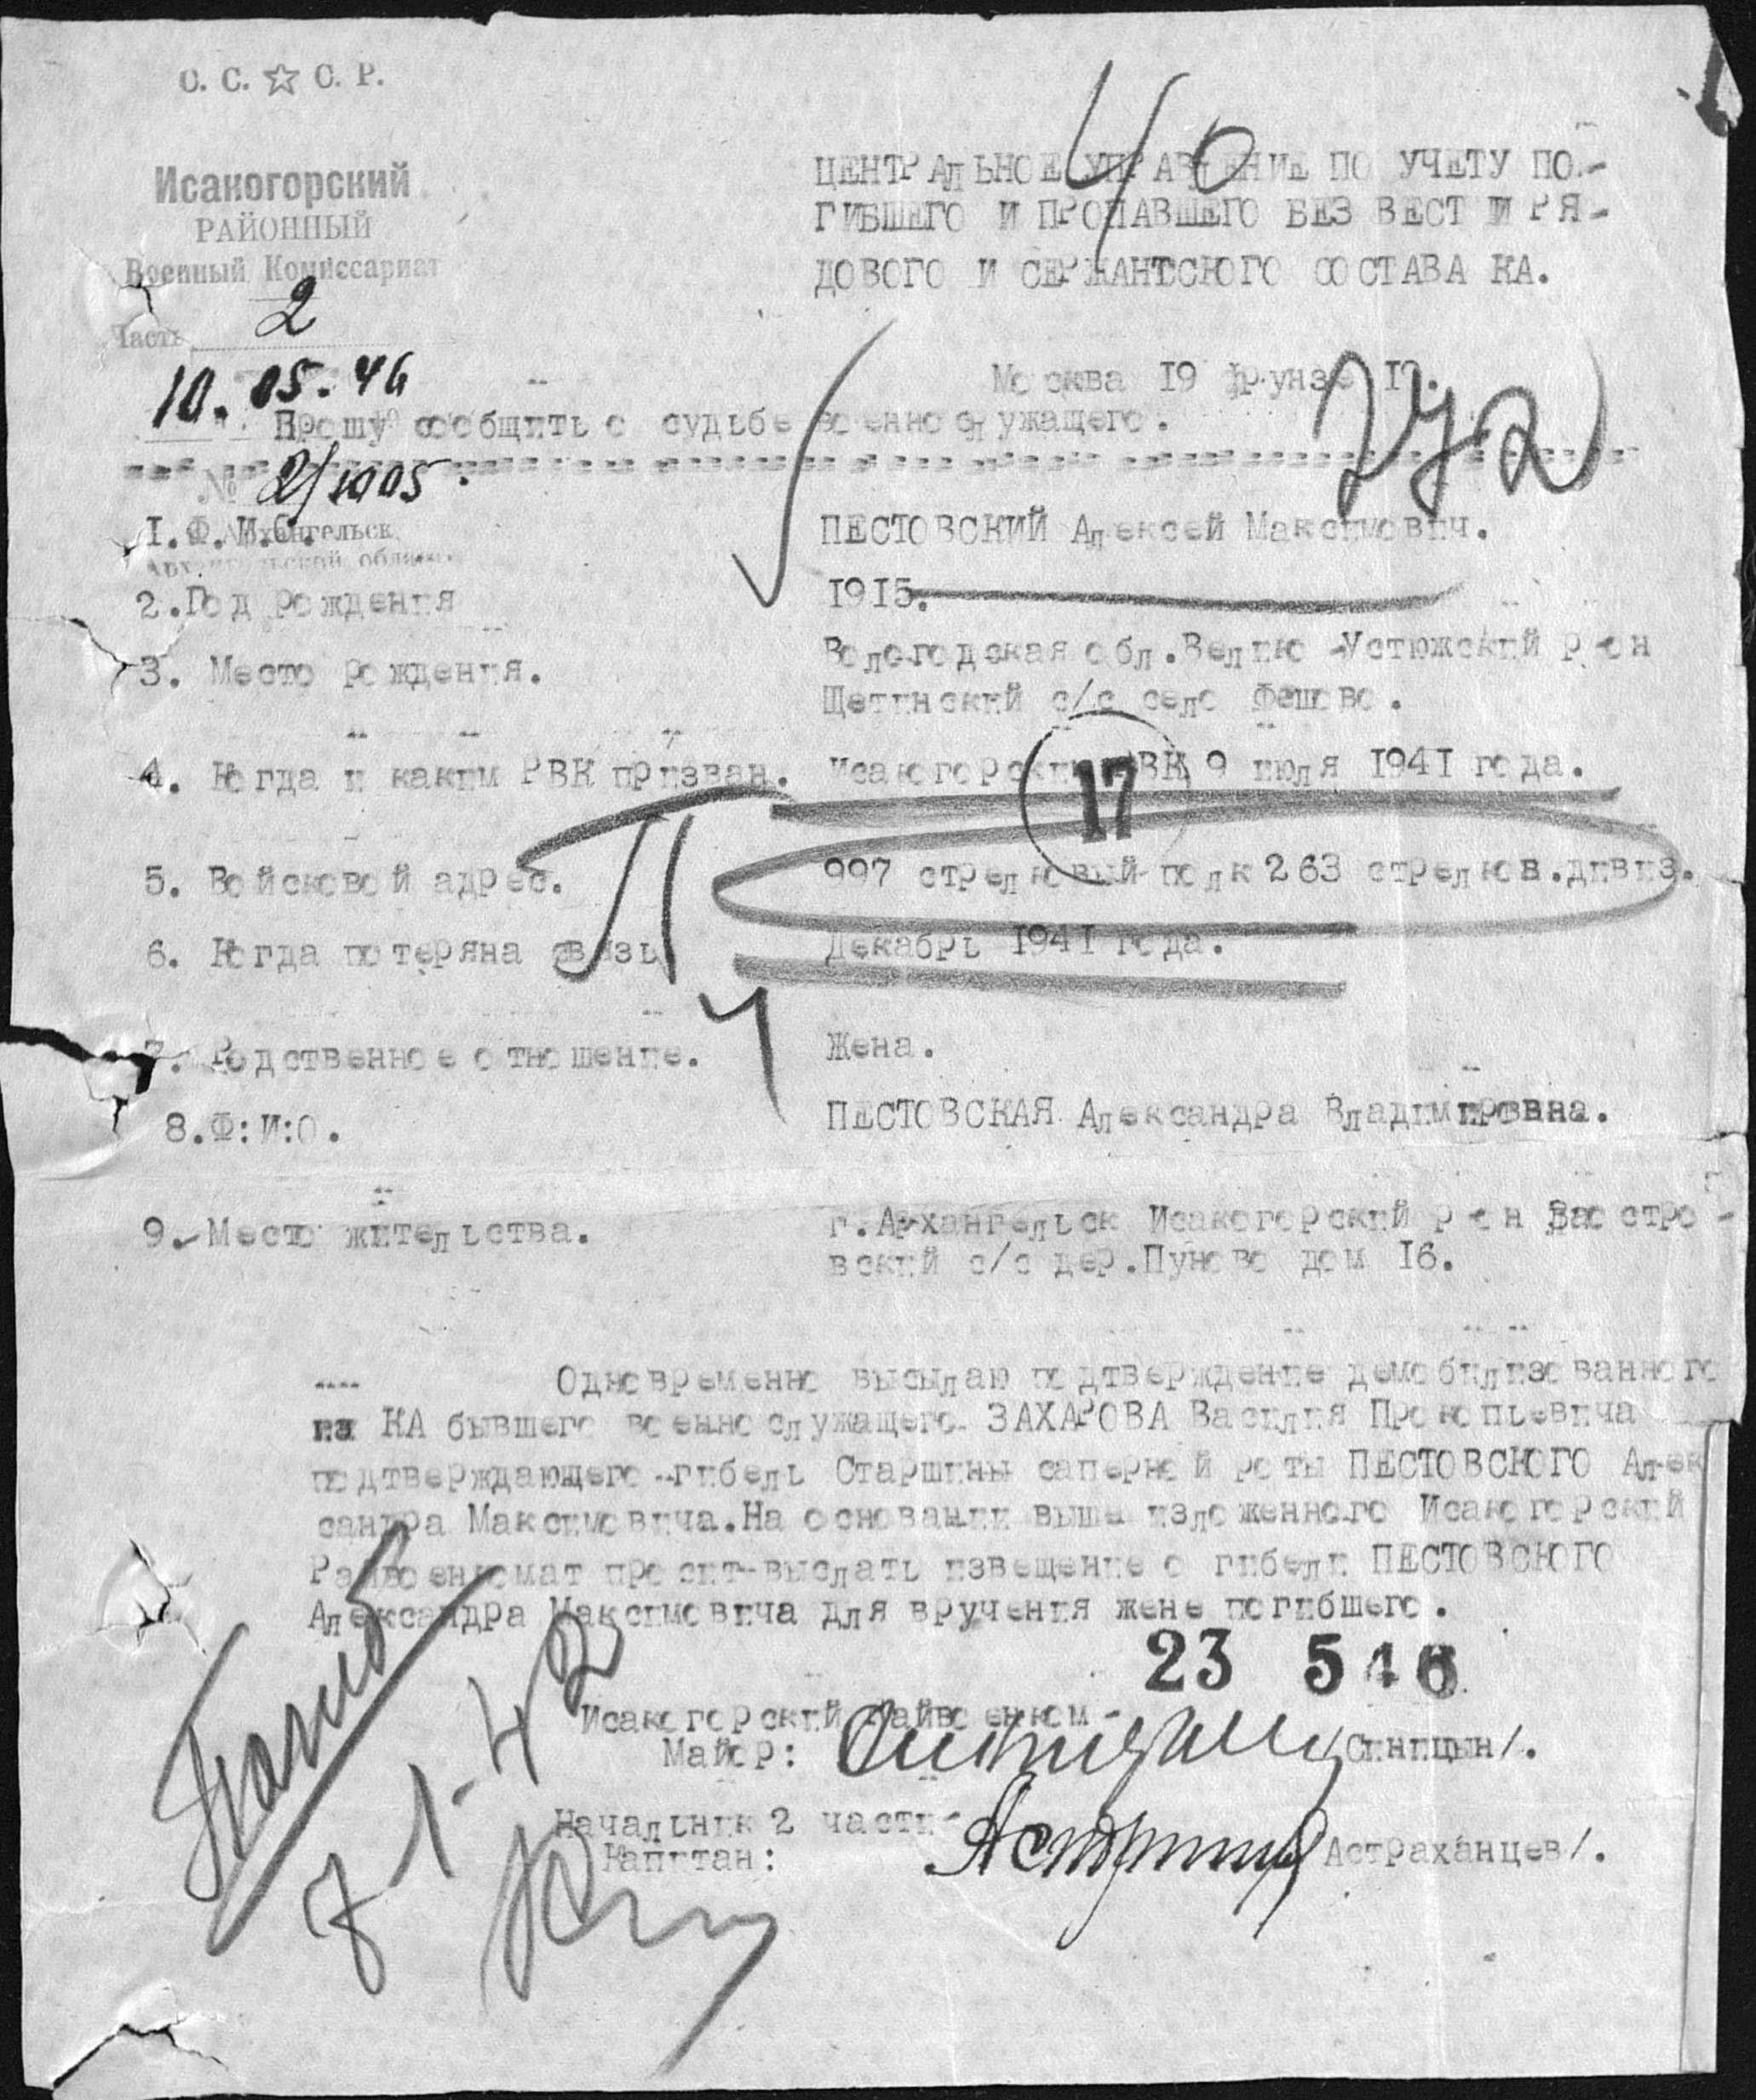 С. С. ☆ С. Р.
Исакогорский
РАЙОННЫЙ
Военный Комиссариат
Часть 2
10. 05. 46
№ 2/1005
Архангельск
Архангельской области
40
ЦЕНТРАЛЬНОЕ УПРАВЛЕНИЕ ПО УЧЕТУ ПО-
ГИБШЕГО И ПРОПАВШЕГО БЕЗ ВЕСТИ РЯ-
ДОВОГО И СЕРЖАНТСКОГО СОСТАВА КА.
Москва 19 Фрунзе
Прошу сообщить о судьбе военнослужащего.
1. Ф.И.О. ПЕСТОВСКИЙ Алексей Максимович.
2. Год рождения 1915.
3. Место рождения. Вологодская обл. Велико-Устюжский р-он
Щетинский с/с село Фешово.
4. Когда и каким РВК призван. Исакогорским РВК 9 июля 1941 года.
17
5. Войсковой адрес. 997 стрелковый полк 263 стрелков. дивиз.
6. Когда потеряна связь Декабрь 1941 года.
7. Родственное отношение. Жена.
8. Ф:И:О. ПЕСТОВСКАЯ Александра Владимировна.
9. Место жительства. г. Архангельск Исакогорский р-он
вский с/с дер. Пуново дом 16.
Одновременно высылаю подтверждение демобилизованного
из КА бывшего военнослужащего ЗАХАРОВА Василия Прокопьевича
подтверждающего гибель Старшины саперной роты ПЕСТОВСКОГО Алек
сандра Максимовича. На основании выше изложенного Исакогорский
Райвоенкомат просит выслать извещение о гибели ПЕСТОВСКОГО
Александра Максимовича для вручения жене погибшего.
23 546
Исакогорский Райвоенком-
Майор: /Синицын/.
Начальник 2 части-
Капитан: /Астраханцев/.
Погиб
7-1-42